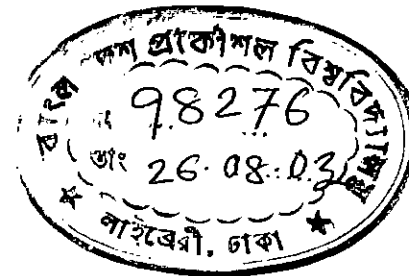 বাংলা দেশ প্রকৌশল বিশ্ববিদ্যালয়
98276
তাং 26.08.03
লাইব্রেরী, ঢাকা